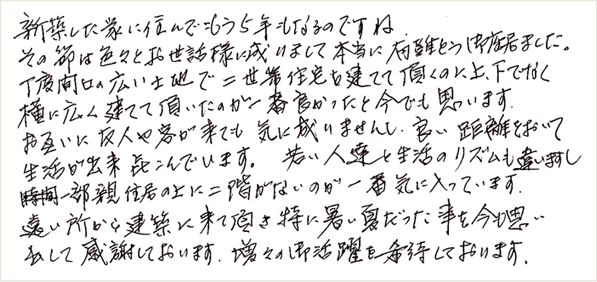 新築した家に住んでもう5年もなるのですね
その節は色々とお世話様に成りまして本当に有難とう御座居ました。
丁度間口の広い土地で二世帯住宅を建てて頂くのに上、下でなく
横に広く建てて頂いたのが一番良かったと今でも思います.
お互いに友人や客が来ても気に成りませんし.良い距離をおいて
生活が出来喜こんでいます。 若い人達と生活のリズムも違いますし
一部親住居の上に二階がないのが一番気に入っています.
遠い所から建築に来て頂き特に暑い夏だった事を今も思い
出して感謝しております.増々の御活躍を希待しております.